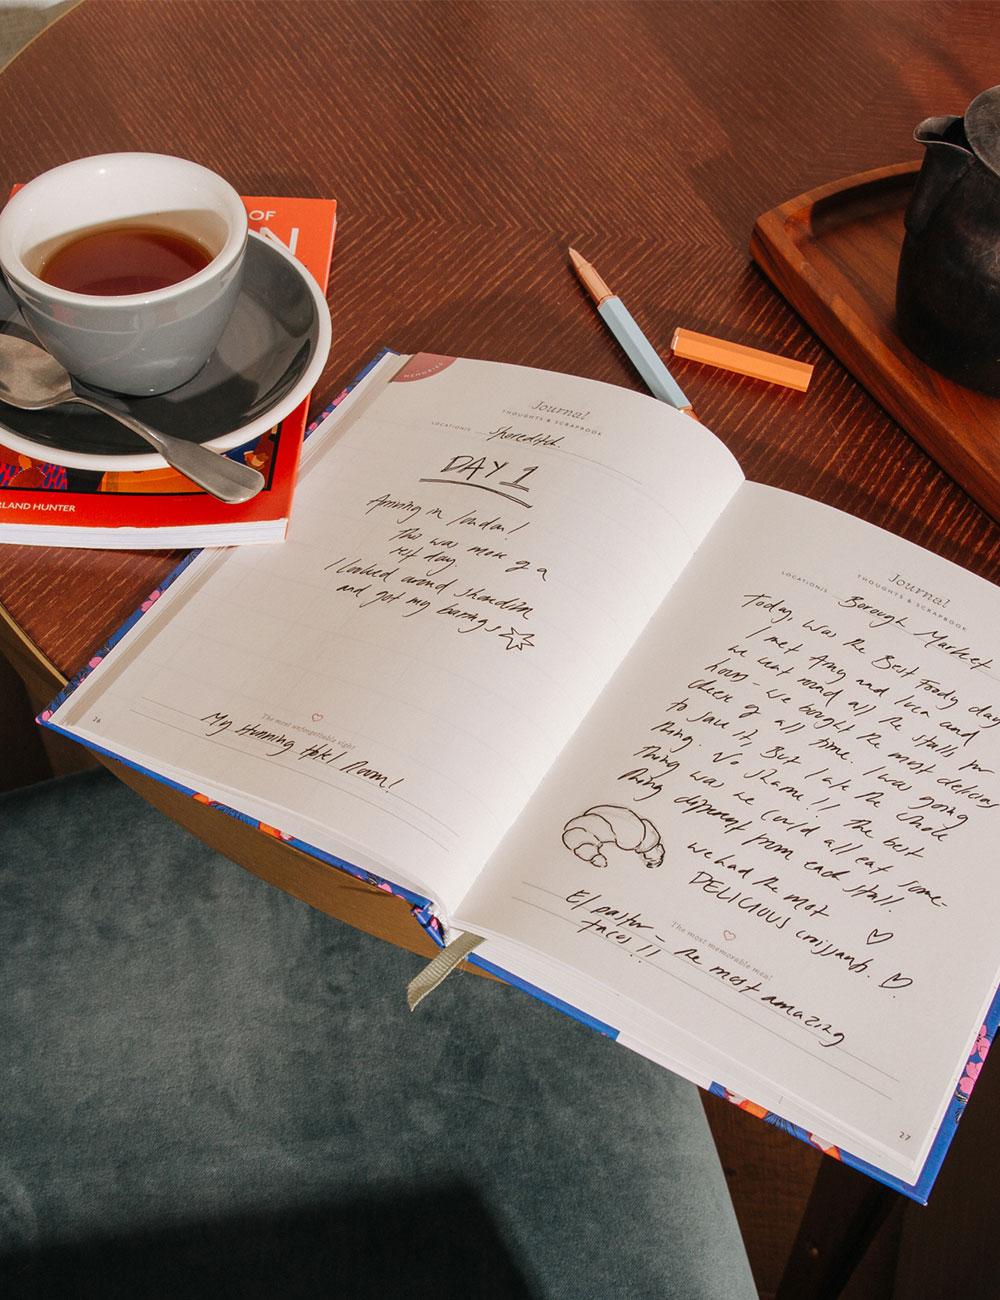 OF
N
RLAND HUNTER
MEMORIES
Journal
THOUGHTS & SCRAPBOOK
LOCATION/S Shoreditch
DAY 1
Arriving in London!
This was more of a
rest day.
I looked around Shoreditch
and got my barings
The most unforgettable sight
My stunning hotel Room!
26
Journal
THOUGHTS & SCRAPBOOK
LOCATION/S Borough Market
Today, was the Best Foody day
I met Amy and Luca and
we went round all the stalls for
hours - we bought the most delicious
cheese of all time. I was going
to save it, But I ate the whole
thing. No shame!! The best
thing was we could all eat some-
thing different from each stall.
we had the most
DELICIOUS croissants.
The most memorable meal
El pastor - the most amazing
tacos!!!
27